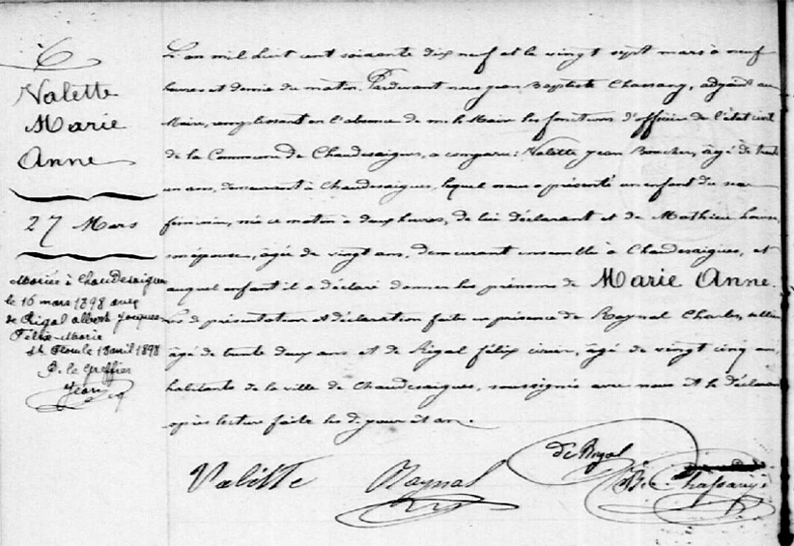 6
Valette
Marie
Anne
27 Mars
Mariée à Chaudesaigues
le 16 mars 1898 avec
de Rigal albert Jacques
Félix-Marie
St Flour le 18 avril 1898
P. le Greffier
L'an mil huit cent soixante dix neuf et le vingt sept mars à neuf
heures et demie du matin. Pardevant nous Jean Baptiste Chassang, adjoint au
Maire, remplissant en l'absence de m. le Maire les fonctions d'officier de l'état civil
de la Commune de Chaudesaigues, a comparu: Valette Jean, âgé de trente
un ans, demeurant à Chaudesaigues, lequel nous a présenté un enfant du sexe
féminin, née ce matin à deux heures, de lui déclarant et de Mathieu
son épouse, âgée de vingt ans, demeurant ensemble à Chaudesaigues, et
auquel enfant il a déclaré donner les prénoms de Marie Anne.
Les d. présentation et déclaration faites en présence de Raynal Charles,
âgé de trente deux ans et de Rigal félix, âgé de vingt cinq ans,
habitants de la ville de Chaudesaigues, soussignés avec nous et le déclarant
après lecture faite les d. jour et an.
Valette Raynal de Rigal Chassang